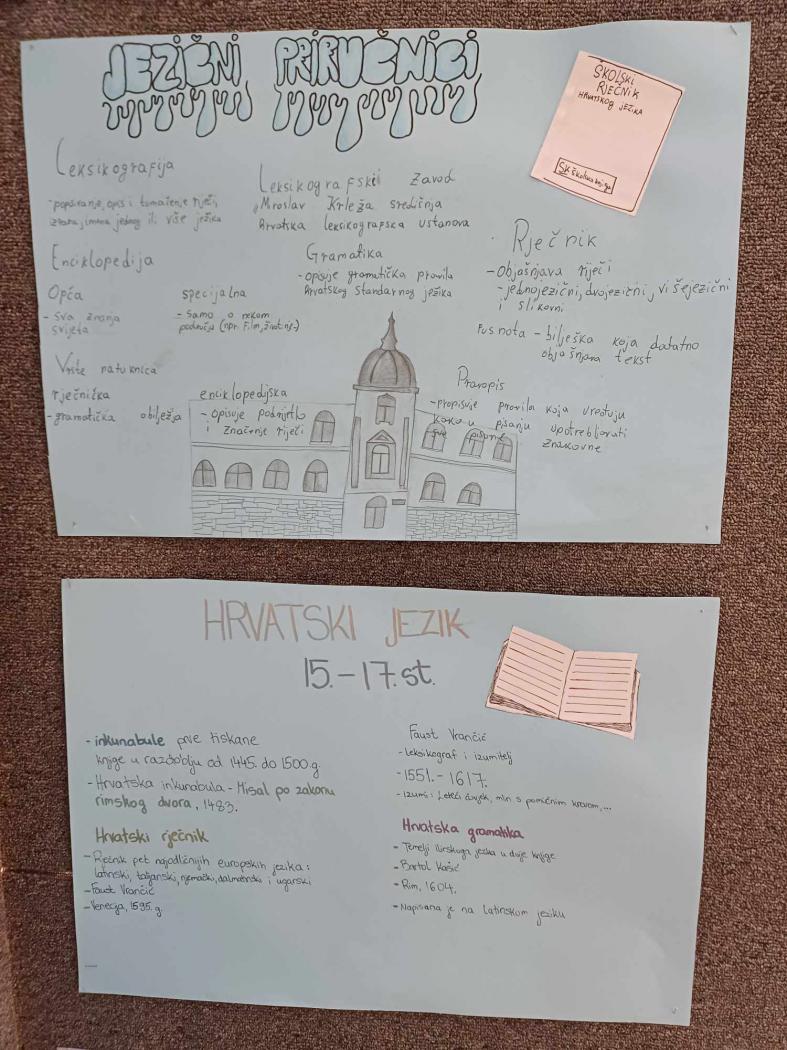 JEZIČNI PRIRUČNICI
ŠKOLSKI
RJEČNIK
HRVATSKOG JEZIKA
SK školska knjiga
Leksikografija
- popisivanje, opis i tumačenje riječi,
znakova, imena jednog ili više jezika
Leksikografski zavod
Miroslav Krleža središnja
hrvatska leksikografska ustanova
Enciklopedija
Opća
- sva znanja
svijeta
specijalna
- samo o nekom
području (npr. Film, život nje-)
Gramatika
- opisuje gramatička pravila
hrvatskog standarnog jezika
Rječnik
- Objašnjava riječi
- jednojezični, dvojezični, višejezični
i slikovni
Fusnota - bilješka koja dodatno
objašnjava tekst
Vrste natuknica
rječnička
- gramatička obilježja
enciklopedijska
- opisuje podrijetlo
i značenje riječi
Pravopis
- propisuje pravila koja uređuju
kako u pisanju upotrebljavati
sve pisane znakovne
HRVATSKI JEZIK
15. - 17. st.
- inkunabule prve tiskane
knjige u razdoblju od 1445. do 1500.g.
- Hrvatska inkunabula - Misal po zakonu
rimskog dvora, 1483.
Hrvatski rječnik
- Rječnik pet najodličnijih europskih jezika:
latinski, talijanski, njemački, dalmatinski i ugarski
- Faust Vrančić
- Venecija, 1595. g.
Faust Vrančić
- leksikograf i izumitelj
- 1551. - 1617.
- izumi: Leteći čovjek, mlin s pomičnim krovom,...
Hrvatska gramatika
- Temelji ilirskoga jezika u dvije knjige
- Bartol Kašić
- Rim, 1604.
- Napisana je na latinskom jeziku